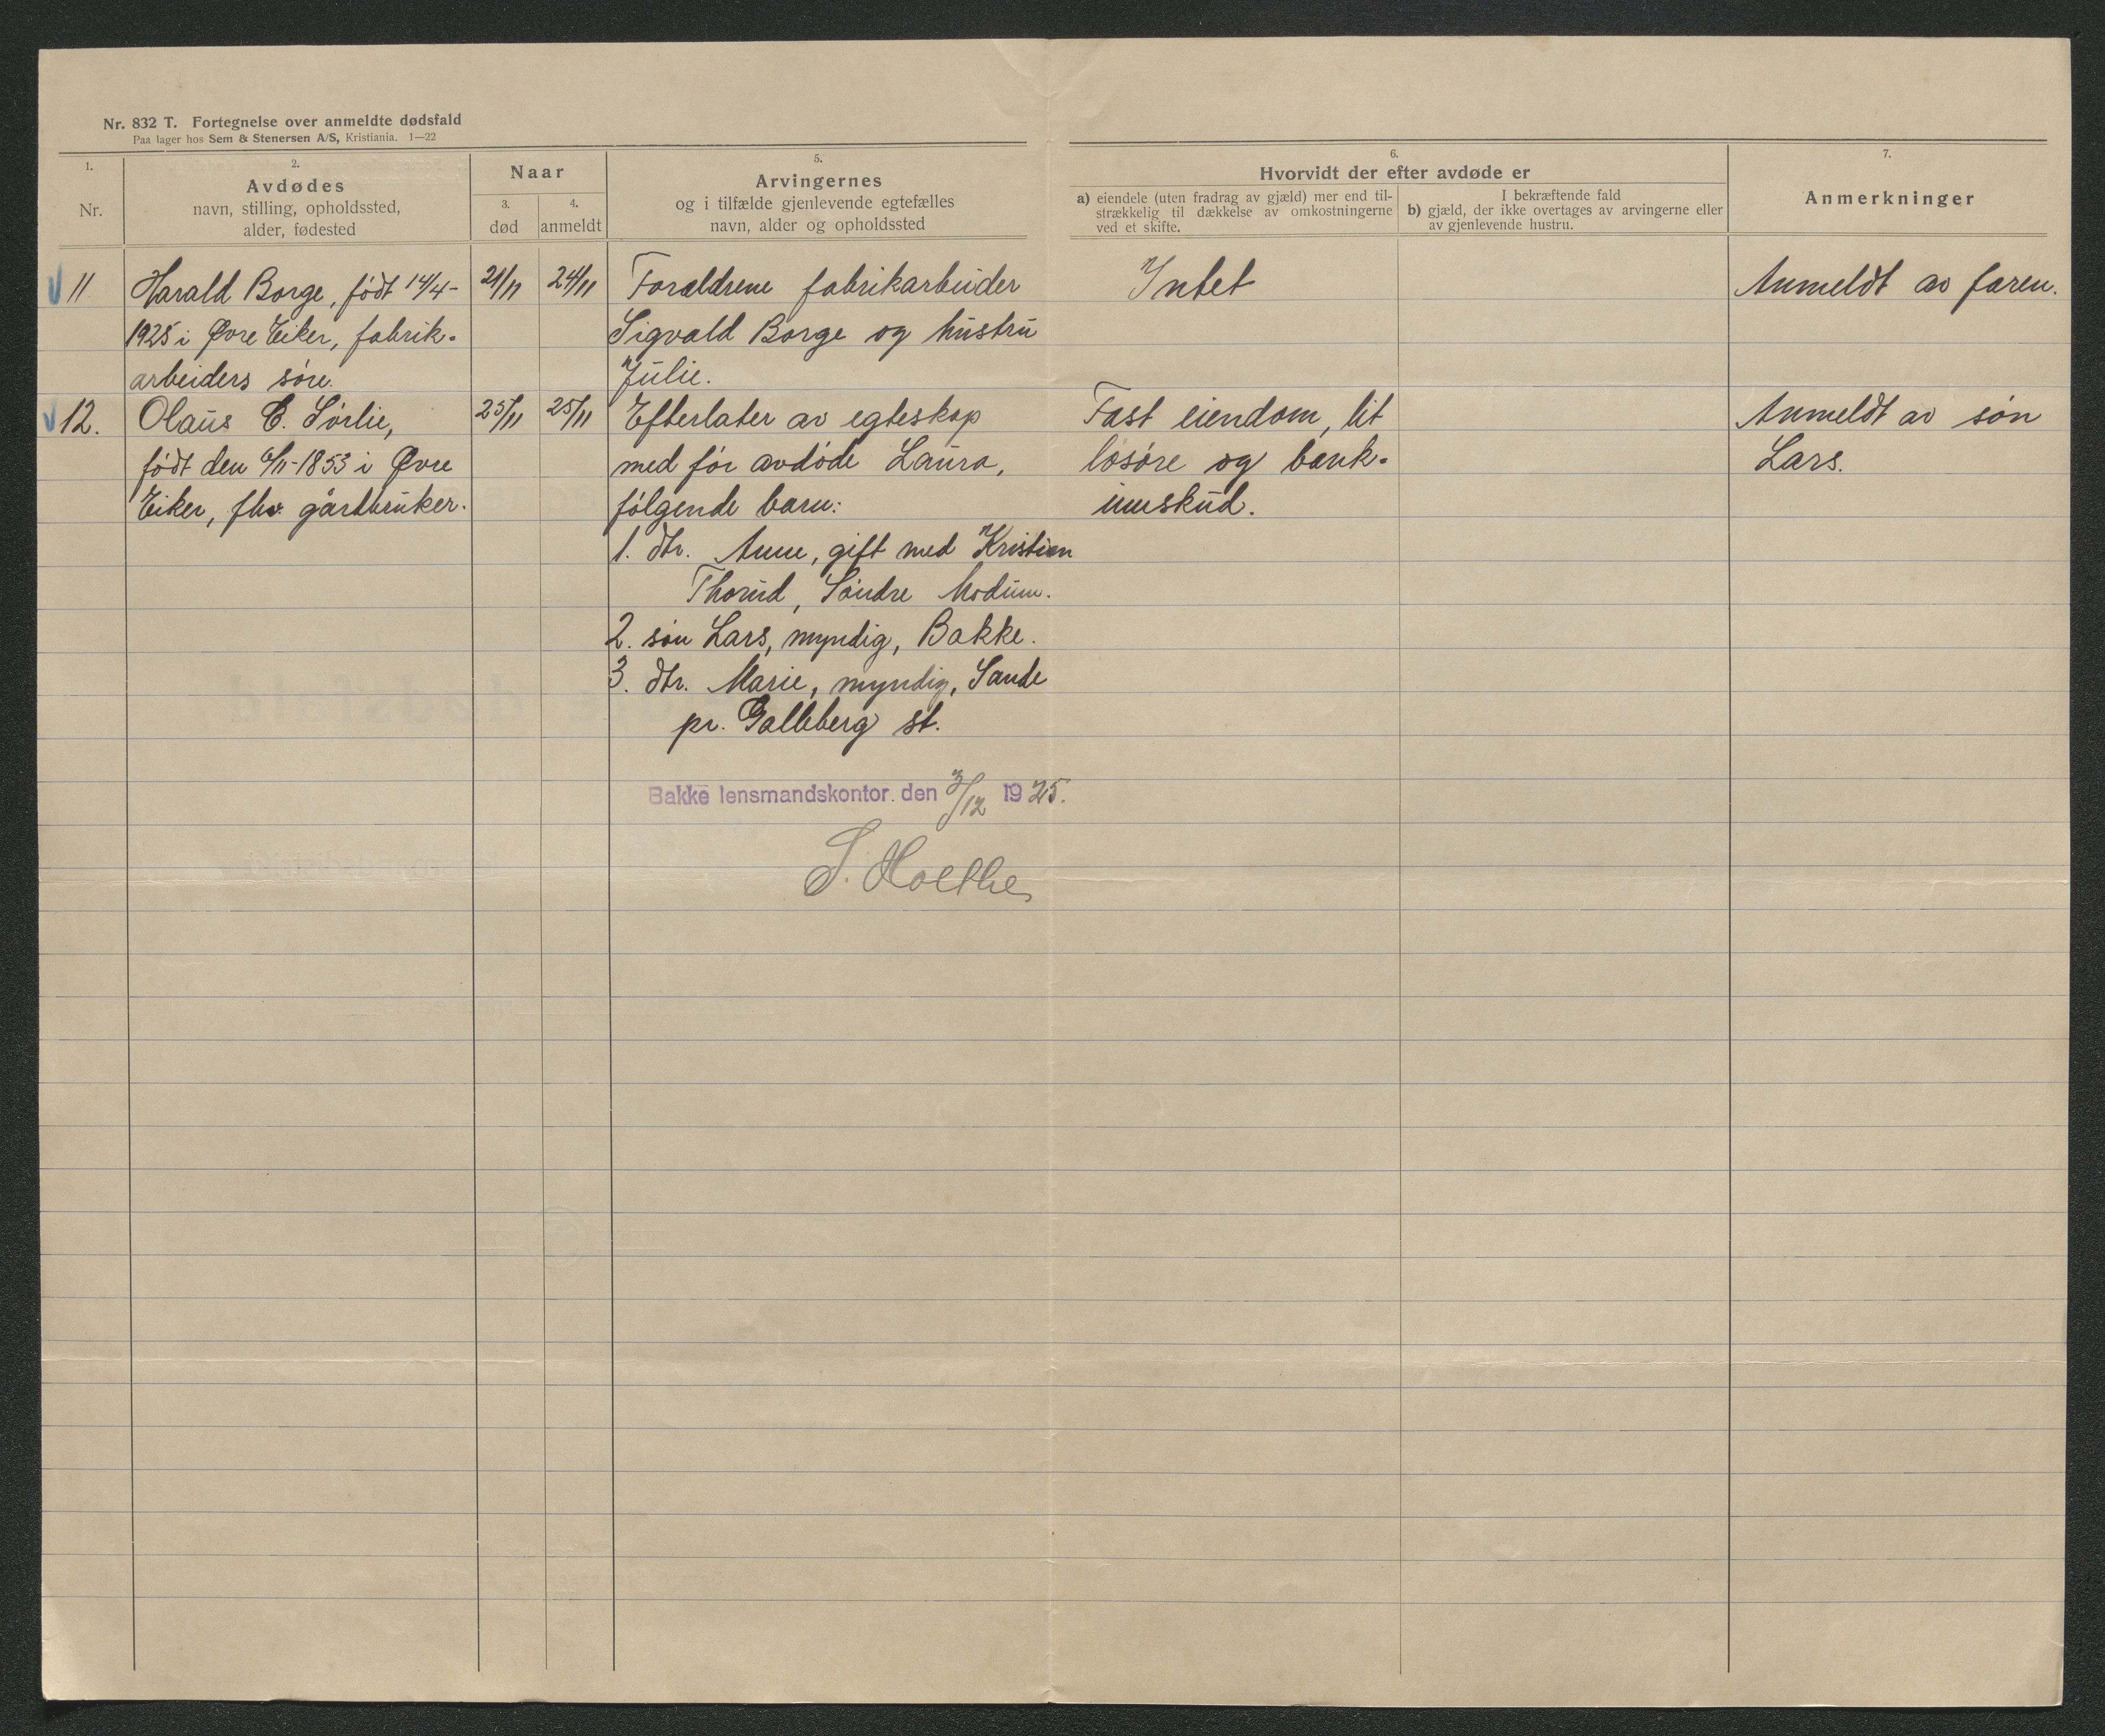 Nr. 832 T. Fortegnelse over anmeldte dødsfald
Paa lager hos Sem & Stenersen A/S, Kristiania. 1—22
1.
Nr.
2.
Avdødes
navn, stilling, opholdssted,
alder, fødested
Naar
3.
død
4.
anmeldt
5.
Arvingernes
og i tilfælde gjenlevende egtefælles
navn, alder og opholdssted
6.
Hvorvidt der efter avdøde er
a) eiendele (uten fradrag av gjæld) mer end til-
strækkelig til dækkelse av omkostningerne
ved et skifte.
I bekræftende fald
b) gjæld, der ikke overtages av arvingerne eller
av gjenlevende hustru.
7.
Anmerkninger
11
Harald Borge, født 14/4-
1925 i Øvre Eiker, fabrik-
arbeiders søn.
21/11
24/11
Forældrene fabrikarbeider
Sigvald Borge og hustru
Julie.
Intet
Anmeldt av faren.
12.
Olaus E. Sørlie,
født den /11-1853 i Øvre
Eiker, fhv. gårdbruker.
25/11
25/11
Efterlater av egteskap
med før avdøde Laura,
følgende barn:
1. dtr. Anne, gift med Kristian
Thorud, Søndre Modum.
2. søn Lars, myndig, Bakke.
3. dtr. Marie, myndig, Sande
pr. Galleberg st.
Fast eiendom, lit
løsøre og bank-
innskud.
Anmeldt av søn
Lars.
Bakke lensmandskontor. den 3/12 1925.